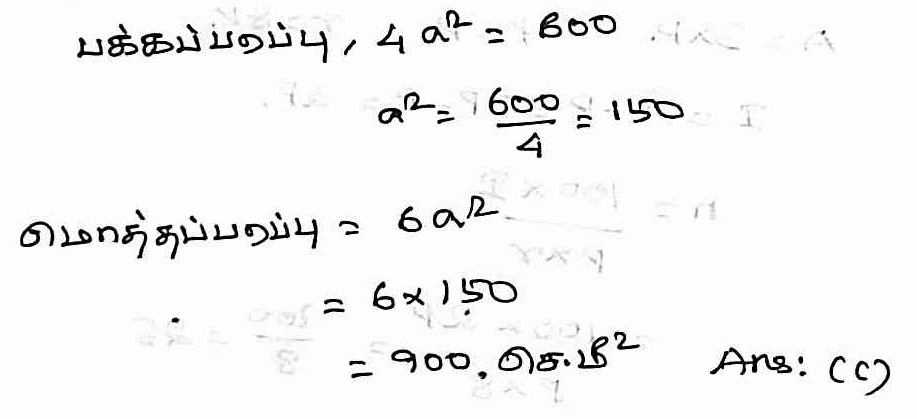 பக்கப்பரப்பு, 4a² = 600
a² = 600/4 = 150
மொத்தப்பரப்பு = 6a²
= 6 × 150
= 900. செ.மீ² Ans: (c)